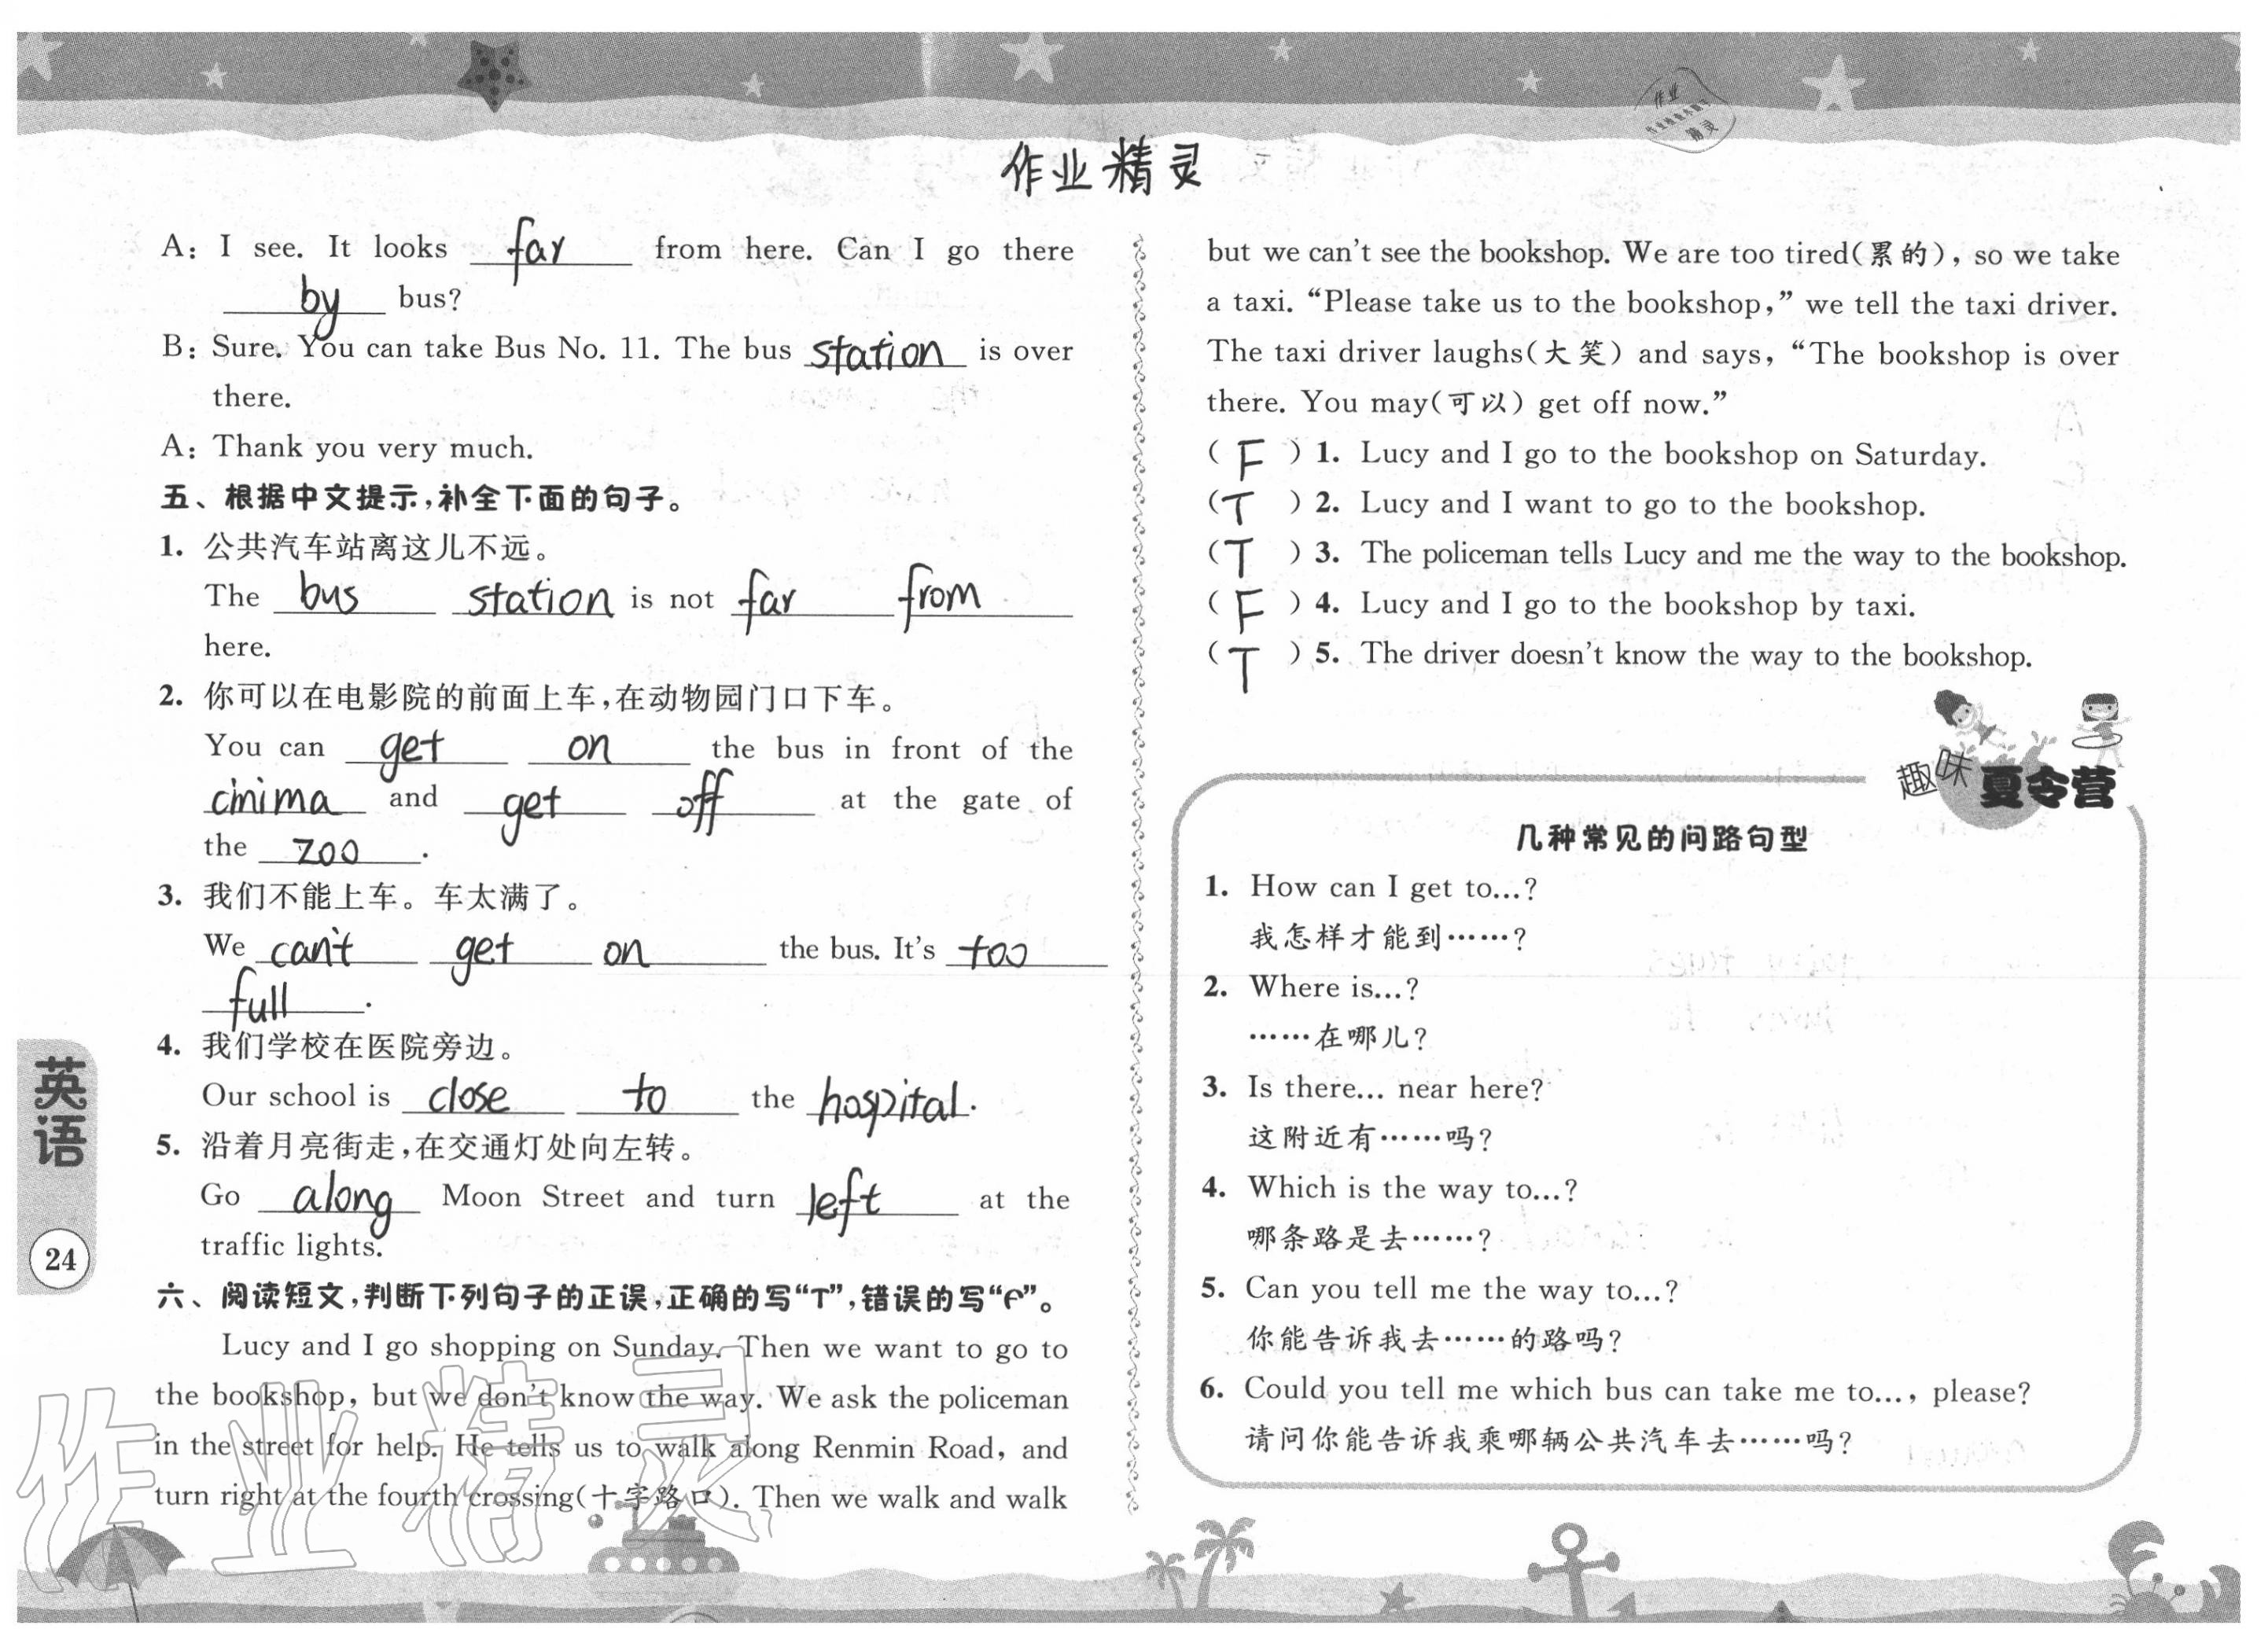 作业精灵
A: I see. It looks far from here. Can I go there
by bus?
B: Sure. You can take Bus No. 11. The bus station is over
there.
A: Thank you very much.
五、根据中文提示,补全下面的句子。
1. 公共汽车站离这儿不远。
The bus station is not far from
here.
2. 你可以在电影院的前面上车,在动物园门口下车。
You can get on the bus in front of the
cinima and get off at the gate of
the zoo.
3. 我们不能上车。车太满了。
We can't get on the bus. It's too
full.
4. 我们学校在医院旁边。
Our school is close to the hospital.
5. 沿着月亮街走,在交通灯处向左转。
Go along Moon Street and turn left at the
traffic lights.
六、阅读短文,判断下列句子的正误,正确的写“T”,错误的写“F”。
Lucy and I go shopping on Sunday. Then we want to go to
the bookshop, but we don't know the way. We ask the policeman
in the street for help. He tells us to walk along Renmin Road, and
turn right at the fourth crossing(十字路口). Then we walk and walk
but we can't see the bookshop. We are too tired(累的), so we take
a taxi. “Please take us to the bookshop,” we tell the taxi driver.
The taxi driver laughs(大笑) and says, “The bookshop is over
there. You may(可以) get off now.”
( F ) 1. Lucy and I go to the bookshop on Saturday.
( T ) 2. Lucy and I want to go to the bookshop.
( T ) 3. The policeman tells Lucy and me the way to the bookshop.
( F ) 4. Lucy and I go to the bookshop by taxi.
( T ) 5. The driver doesn't know the way to the bookshop.
趣味夏令营
几种常见的问路句型
1. How can I get to...?
我怎样才能到……?
2. Where is...?
……在哪儿?
3. Is there... near here?
这附近有……吗?
4. Which is the way to...?
哪条路是去……?
5. Can you tell me the way to...?
你能告诉我去……的路吗?
6. Could you tell me which bus can take me to..., please?
请问你能告诉我乘哪辆公共汽车去……吗?
英语
24
作业精灵